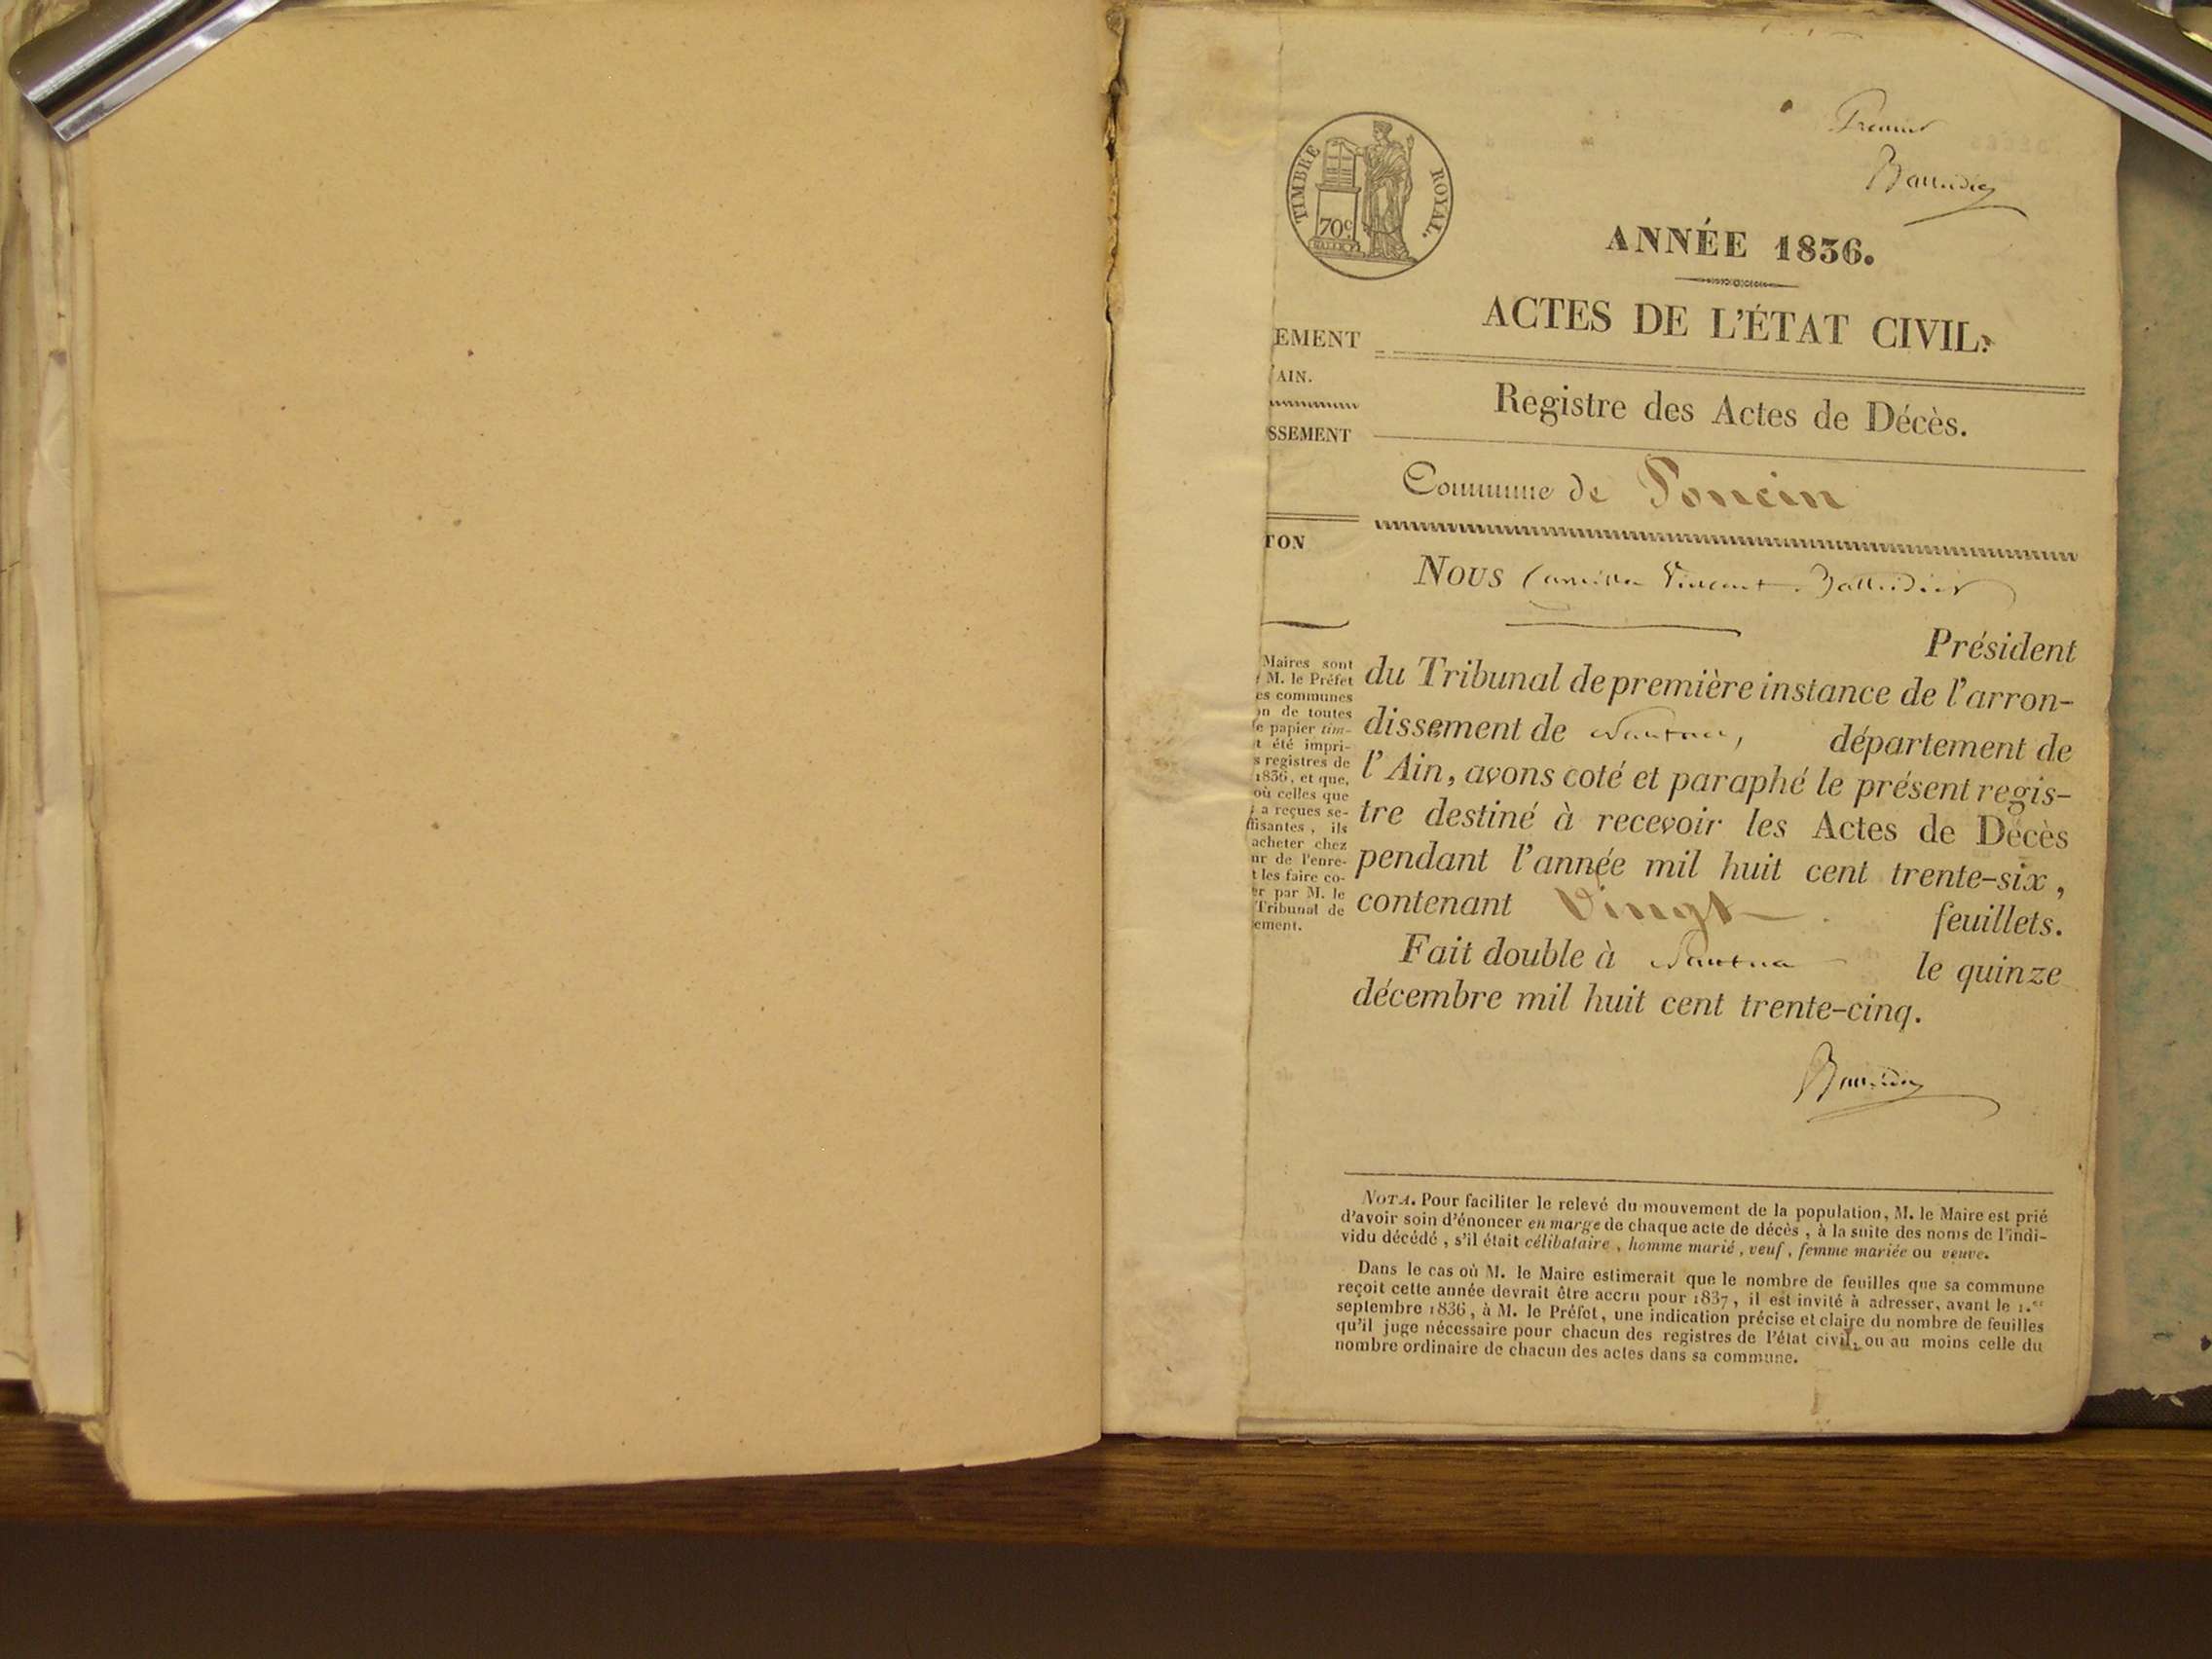 Premier
TIMBRE ROYAL.
70c
ANNÉE 1836.
ACTES DE L'ÉTAT CIVIL.
EMENT
AIN.
Registre des Actes de Décès.
SSEMENT
Commune de Poncin
TON
Nous Camille Vincent
Président
du Tribunal de première instance de l'arron-
dissement de Nantua, département de
l'Ain, avons coté et paraphé le présent regis-
tre destiné à recevoir les Actes de Décès
pendant l'année mil huit cent trente-six,
contenant Vingt feuillets.
Fait double à Nantua le quinze
décembre mil huit cent trente-cinq.
Maires sont
M. le Préfet
es communes
on de toutes
e papier tim-
t été impri-
s registres de
1836, et que,
où celles que
a reçues se-
ffisantes, ils
acheter chez
ur de l'enre-
t les faire co-
er par M. le
Tribunal de
ement.
NOTA. Pour faciliter le relevé du mouvement de la population, M. le Maire est prié
d'avoir soin d'énoncer en marge de chaque acte de décès, à la suite des noms de l'indi-
vidu décédé, s'il était célibataire, homme marié, veuf, femme mariée ou veuve.
Dans le cas où M. le Maire estimerait que le nombre de feuilles que sa commune
reçoit cette année devrait être accru pour 1837, il est invité à adresser, avant le 1.er
septembre 1836, à M. le Préfet, une indication précise et claire du nombre de feuilles
qu'il juge nécessaire pour chacun des registres de l'état civil, ou au moins celle du
nombre ordinaire de chacun des actes dans sa commune.